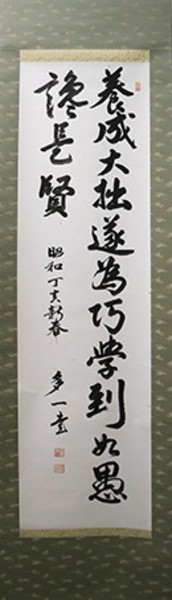 養成大拙遂為巧学到如愚
讒是賢
昭和丁亥新春
多一書